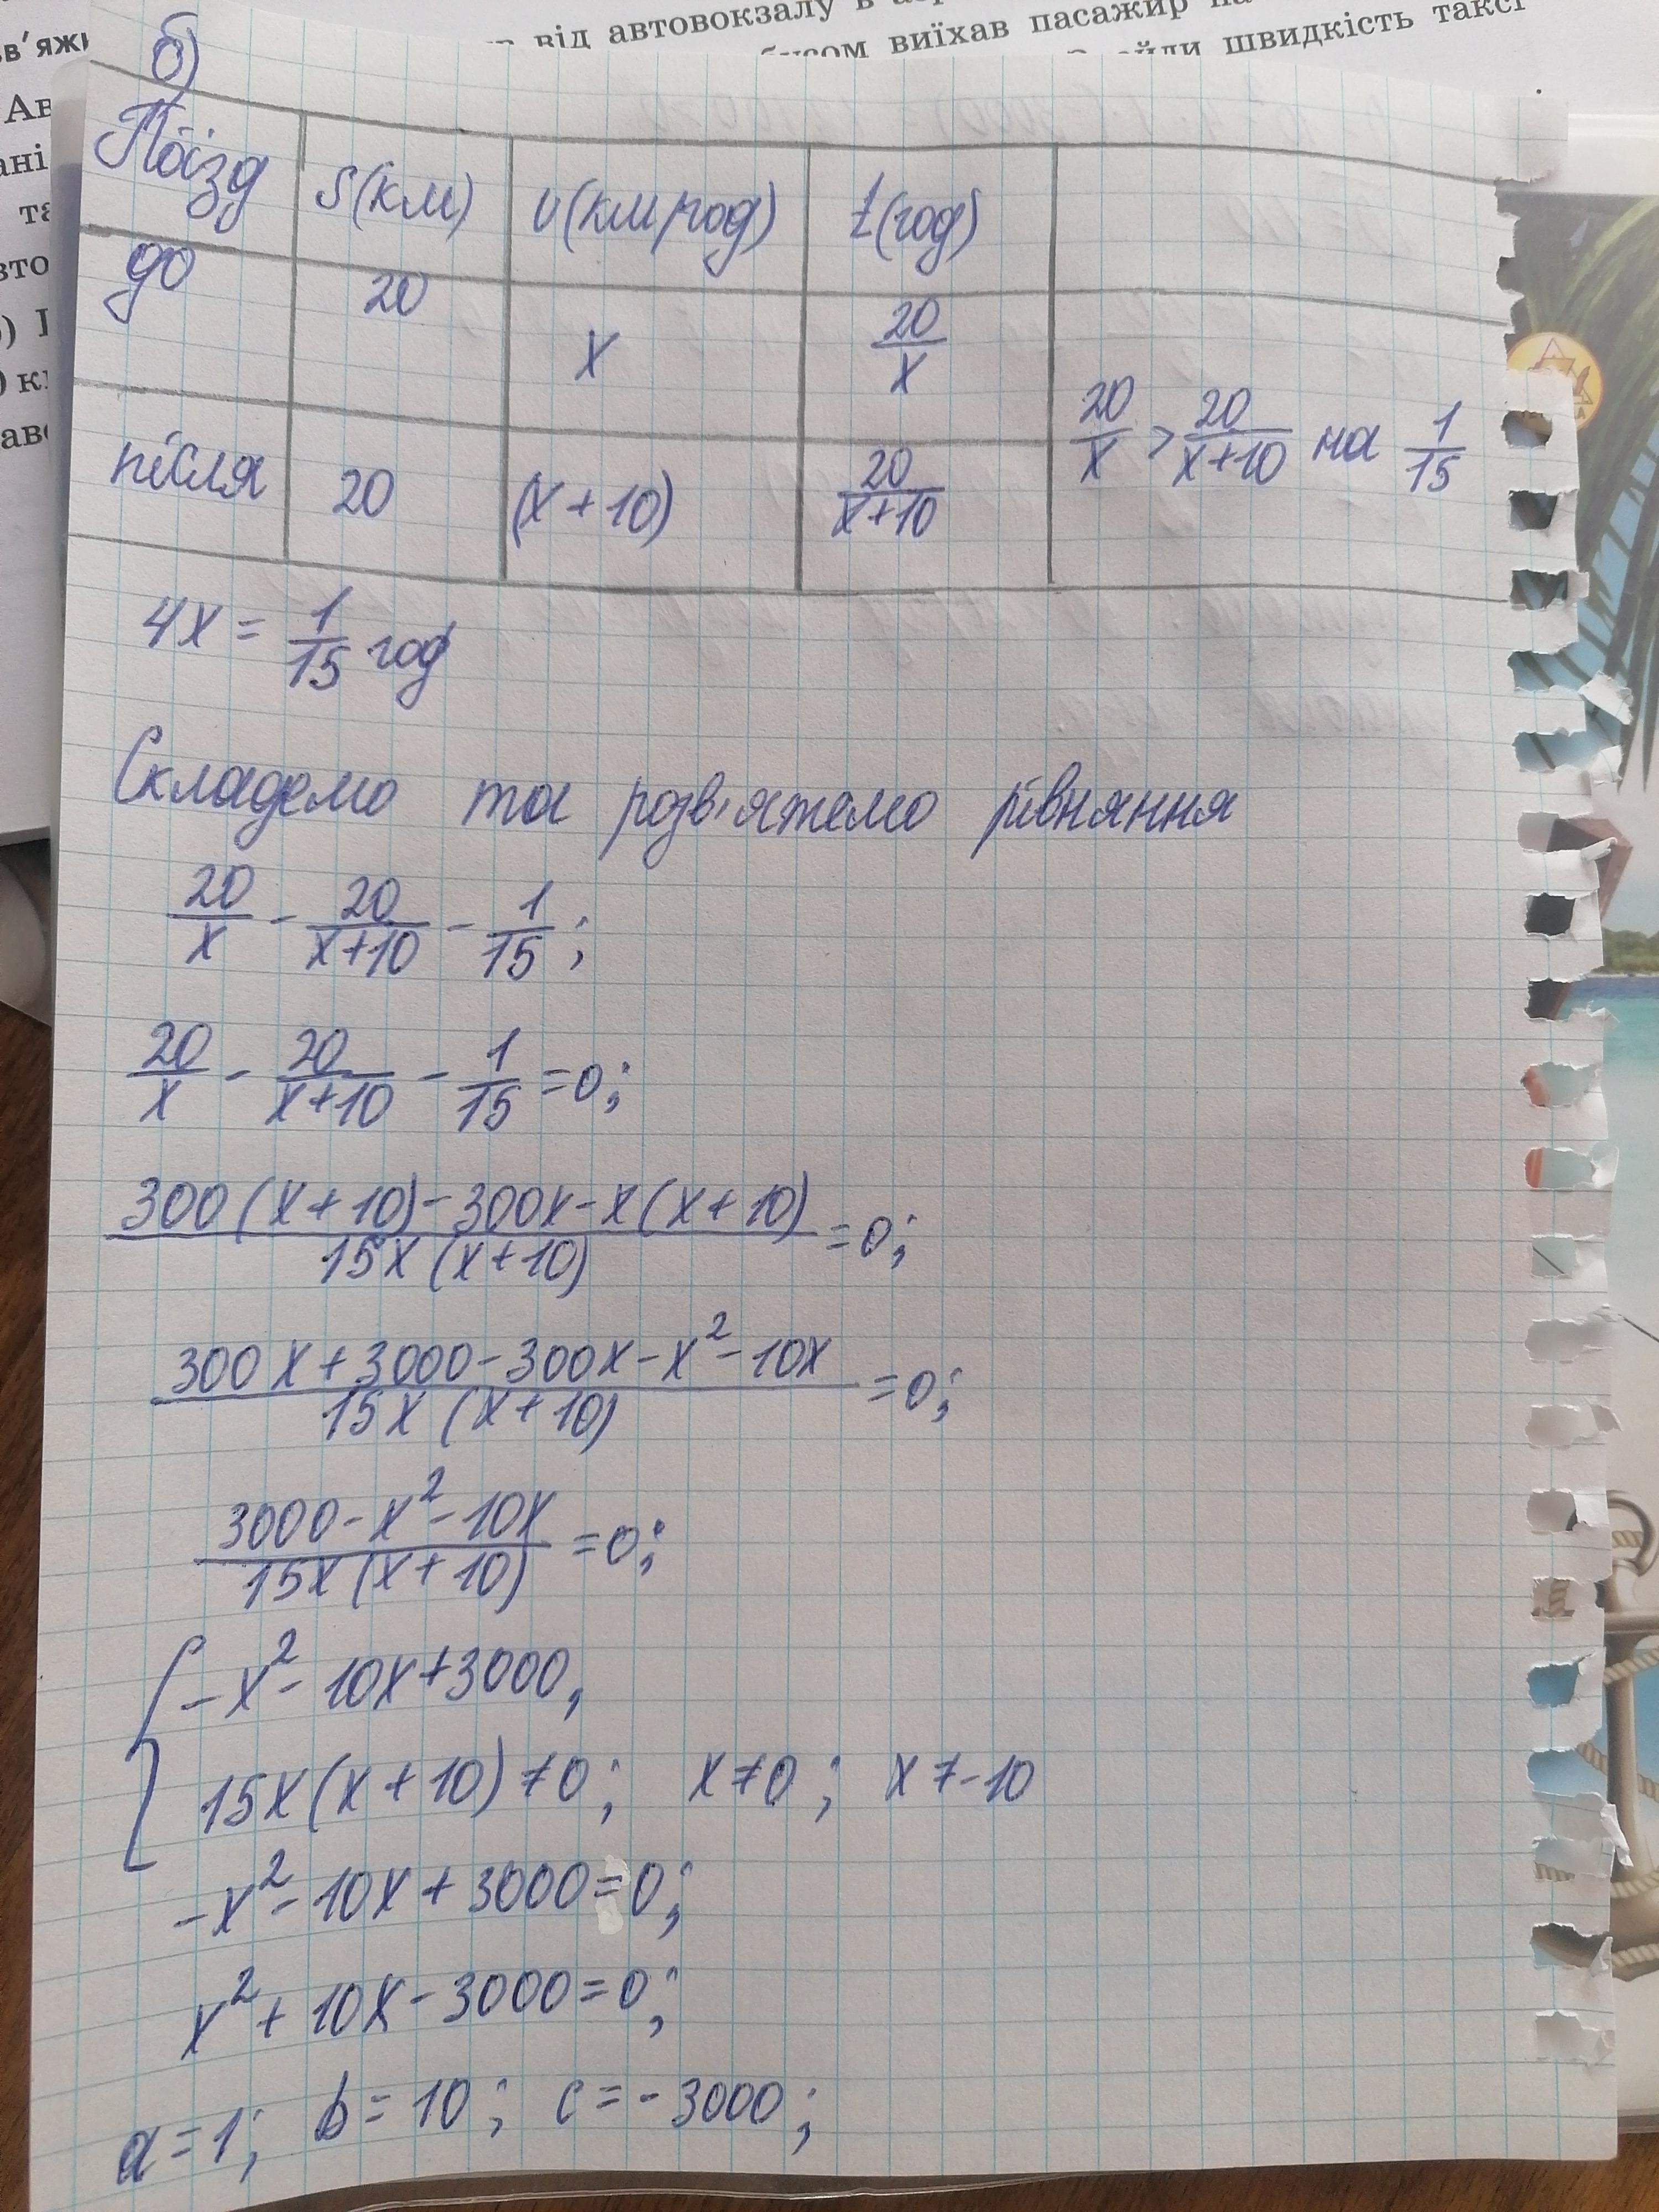 від автовокзалу в
зв'яжи
виїхав пасажир
швидкість таксі
б)
Поїзд S(км) υ(км/год) t(год)
до 20 x 20/x
20/x > 20/x+10 на 1/15
після 20 (x+10) 20/x+10
4x = 1/15 год
Складемо та розв'яжемо рівняння
20/x - 20/x+10 - 1/15;
20/x - 20/x+10 - 1/15 = 0;
300(x+10)-300x-x(x+10)/15x(x+10) = 0;
300x+3000-300x-x²-10x/15x(x+10) = 0;
3000-x²-10x/15x(x+10) = 0;
{ -x²-10x+3000,
15x(x+10)≠0; x≠0; x≠-10
-x²-10x+3000=0;
x²+10x-3000=0;
a=1; b=10; c=-3000;